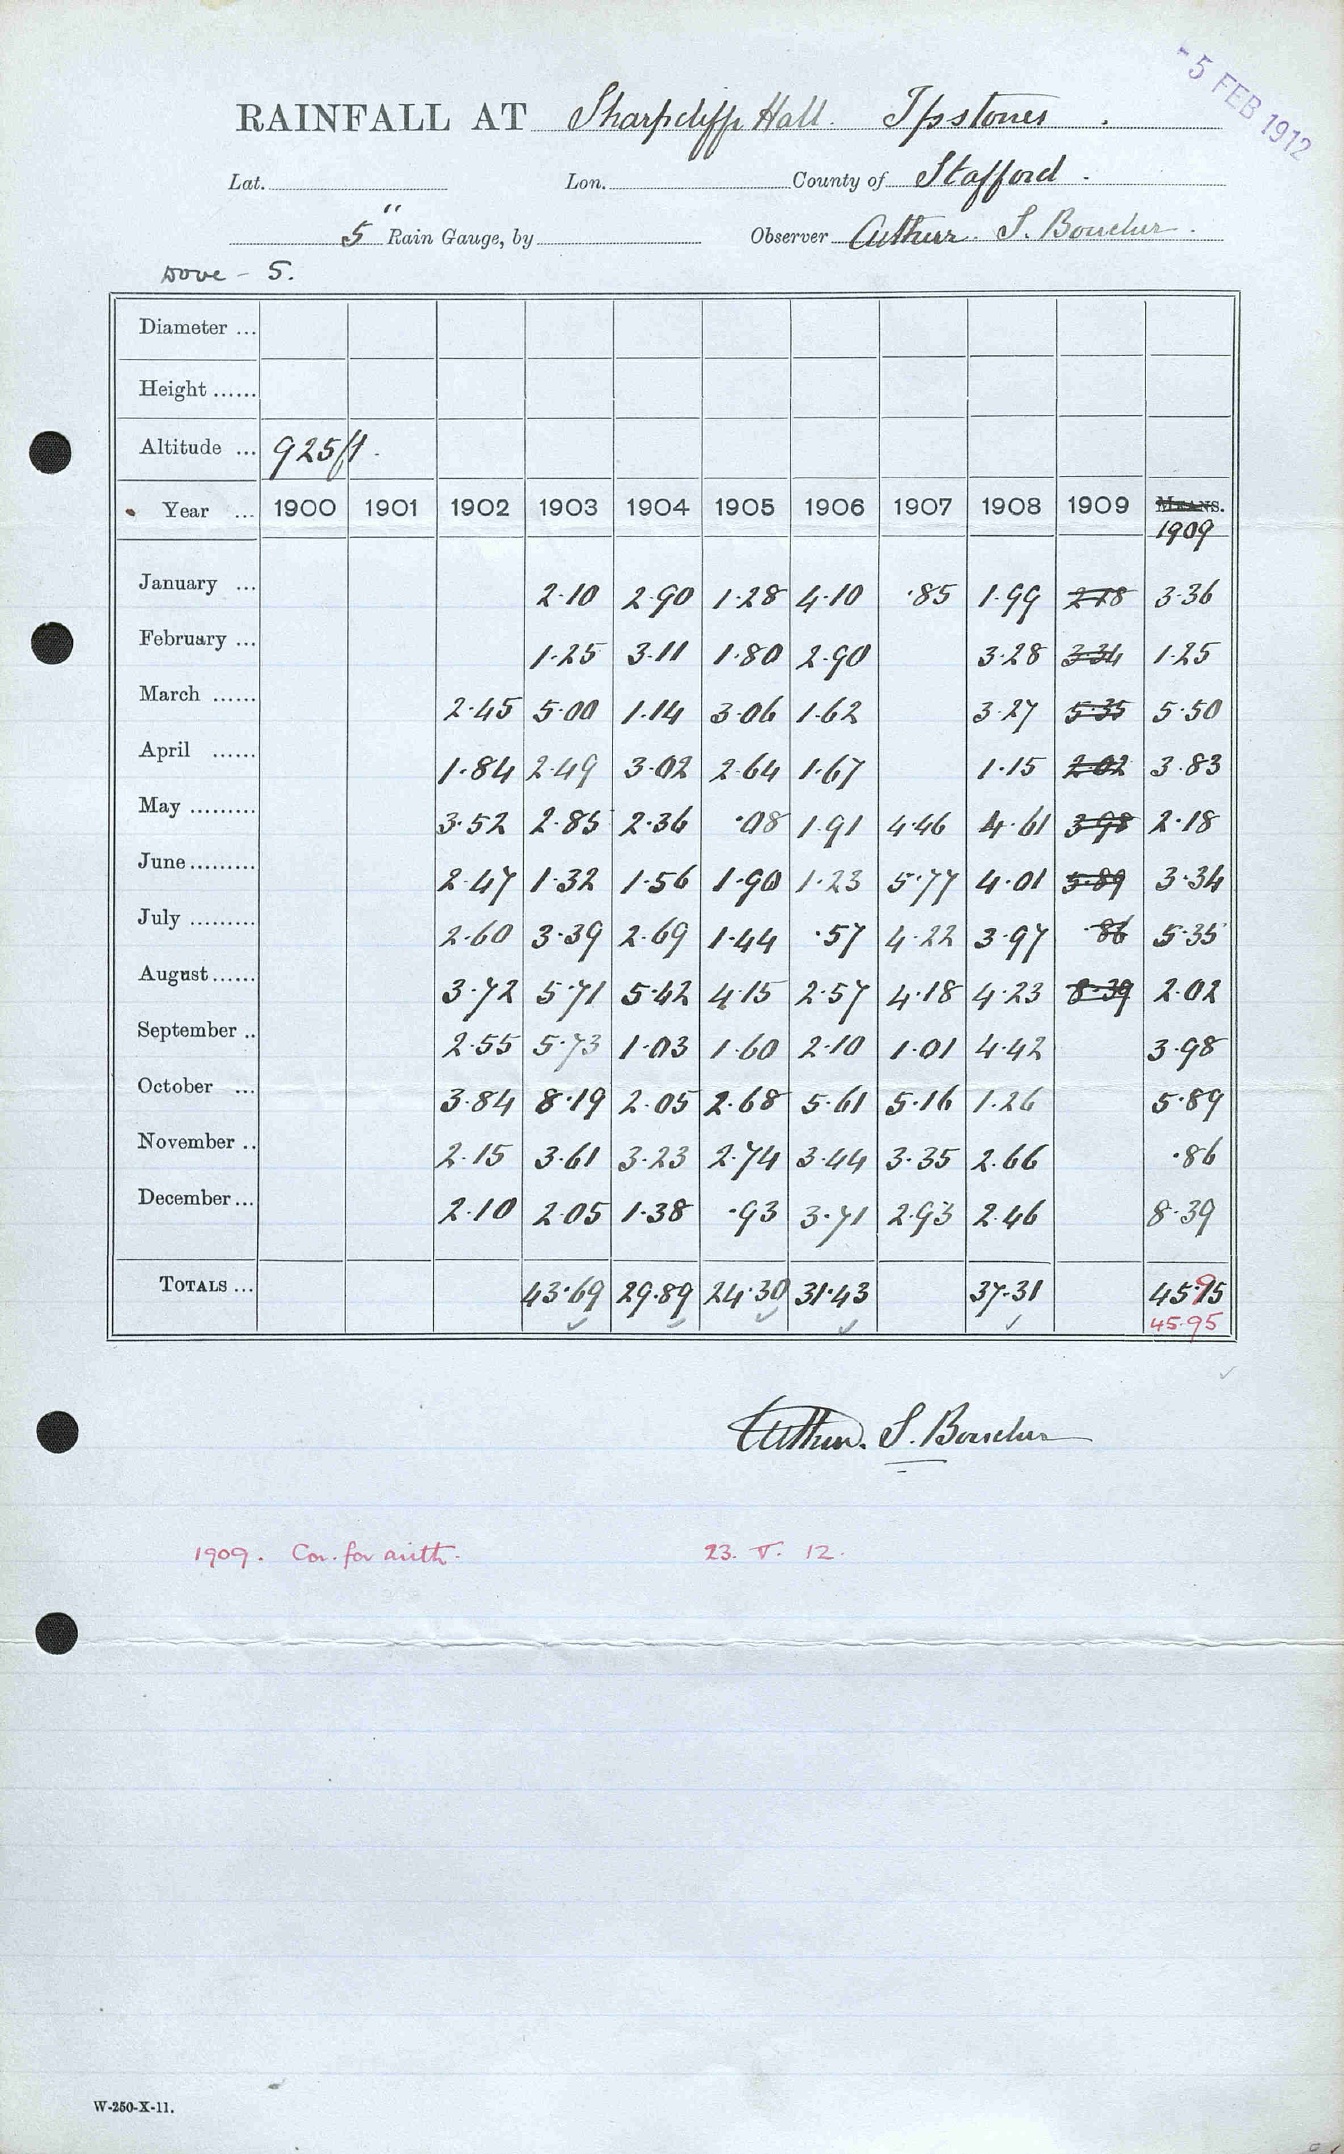 - 5 FEB 1912
RAINFALL AT Sharpcliffe Hall. Ipstones.
Lat. Lon. County of Stafford.
5" Rain Gauge, by Observer Arthur. S. Boucher.
Dove - 5.
Diameter ...
Height ......
Altitude ... 925 ft.
Year ... 1900 1901 1902 1903 1904 1905 1906 1907 1908 1909 MEANS. 1909
January ... 2.10 2.90 1.28 4.10 .85 1.99 2.18 3.36
February ... 1.25 3.11 1.80 2.90 3.28 3.34 1.25
March ...... 2.45 5.00 1.14 3.06 1.62 3.27 5.35 5.50
April ...... 1.84 2.49 3.02 2.64 1.67 1.15 2.02 3.83
May ......... 3.52 2.85 2.36 .08 1.91 4.46 4.61 3.98 2.18
June ......... 2.47 1.32 1.56 1.90 1.23 5.77 4.01 5.89 3.34
July ......... 2.60 3.39 2.69 1.44 .57 4.22 3.97 .86 5.35
August ...... 3.72 5.71 5.42 4.15 2.57 4.18 4.23 8.39 2.02
September .. 2.55 5.73 1.03 1.60 2.10 1.01 4.42 3.98
October ... 3.84 8.19 2.05 2.68 5.61 5.16 1.26 5.89
November .. 2.15 3.61 3.23 2.74 3.44 3.35 2.66 .86
December ... 2.10 2.05 1.38 .93 3.71 2.93 2.46 8.39
TOTALS ... 43.69 29.89 24.30 31.43 37.31 45.95
45.95
Arthur. S. Boucher
1909. Cor. for arith. 23. V. 12.
W-250-X-11.